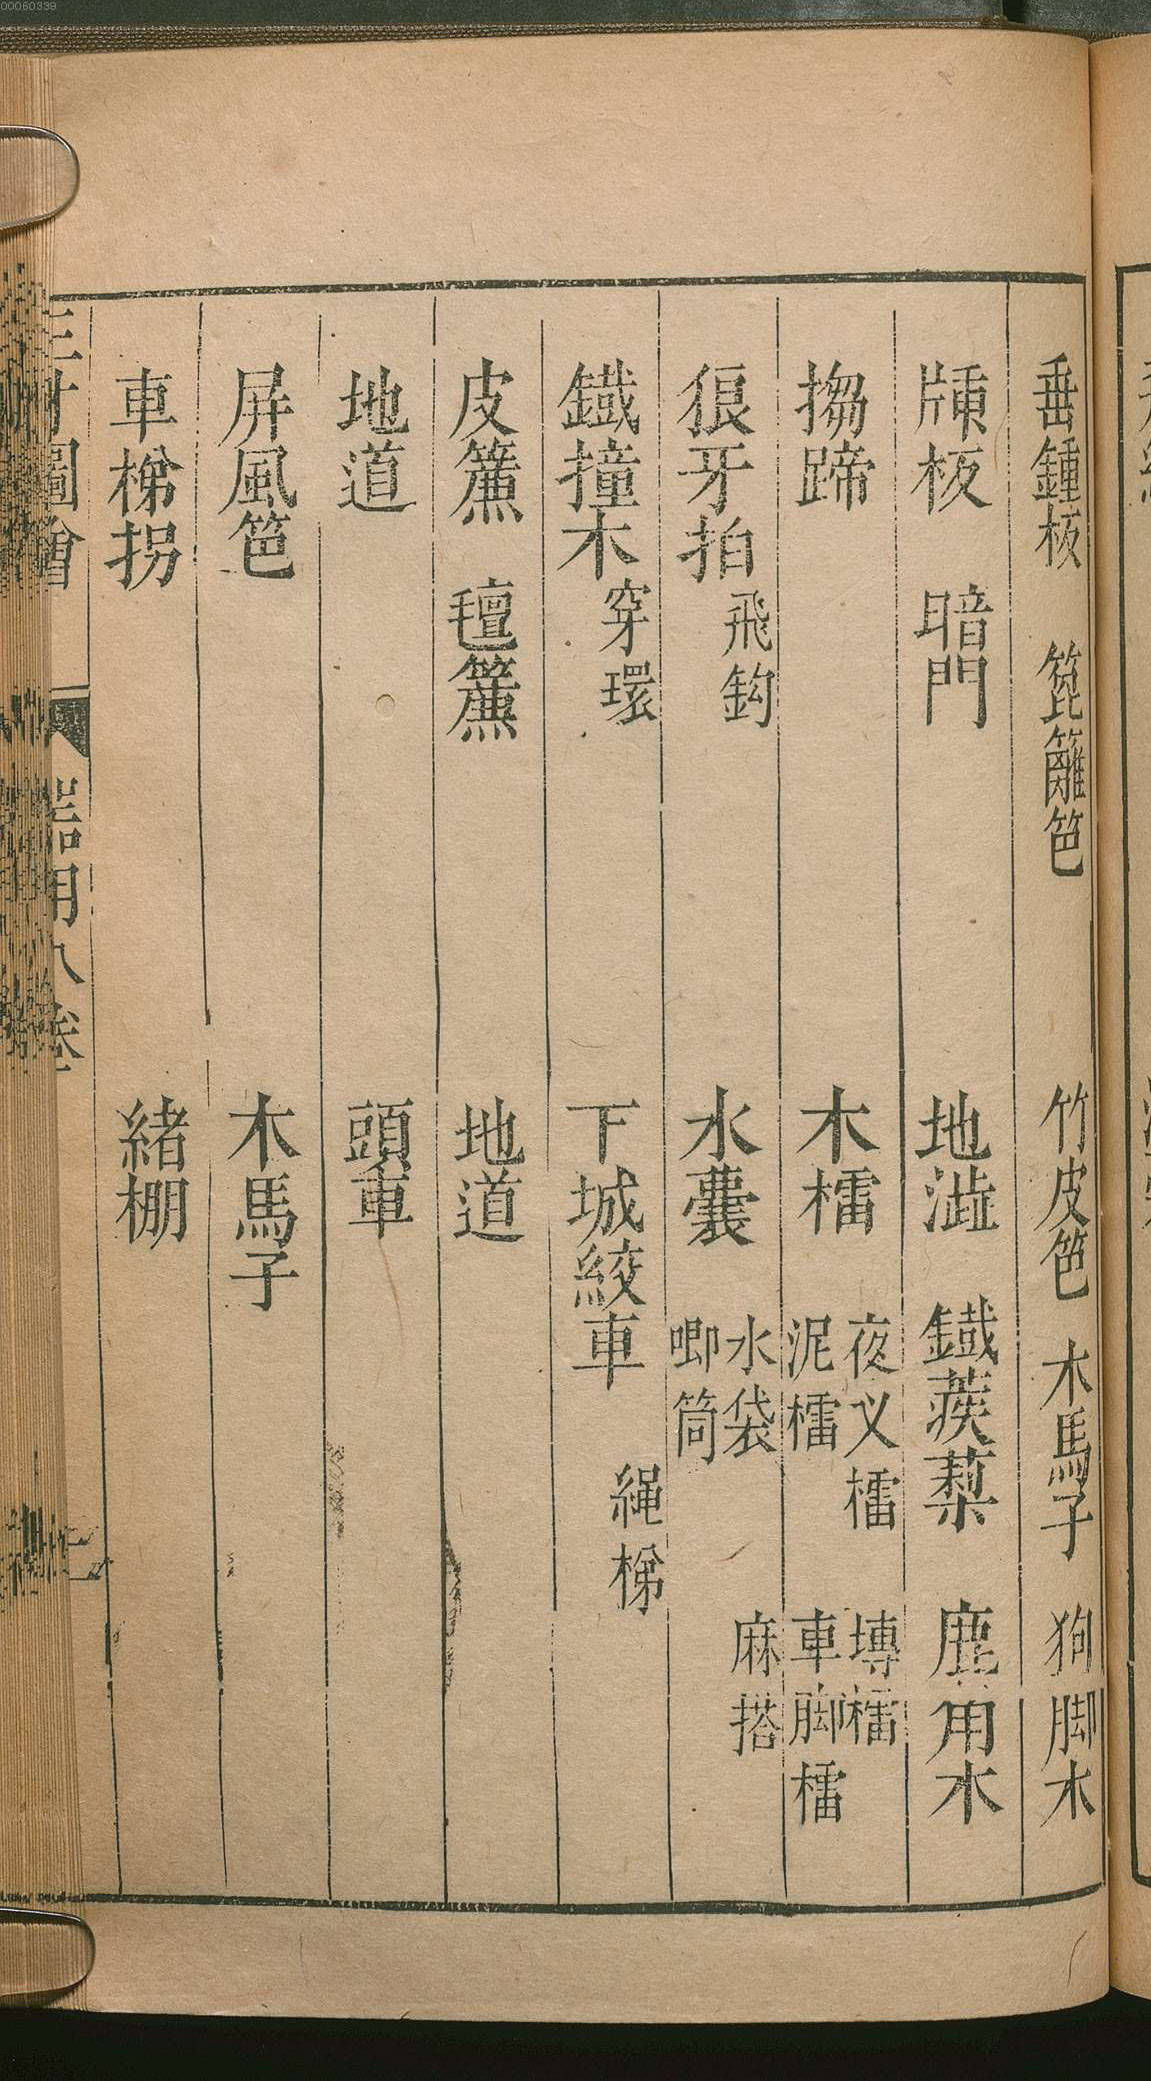 垂鍾板 篦籬笆 竹皮笆 木馬子 狗脚木
牑板 暗門 地澁 鐵蒺蔾 鹿角木
搊蹄 木檑 夜义檑 泥檑 塼檑 車脚檑
狼牙拍 飛鈎 水囊 水袋 唧筒 麻搭
鐵撞木 穿環 下城絞車 繩梯
皮簾 氊簾 地道
地道 頭車
屏風笆 木馬子
車梯拐 緒棚
三才圖會 器用八卷
00060339